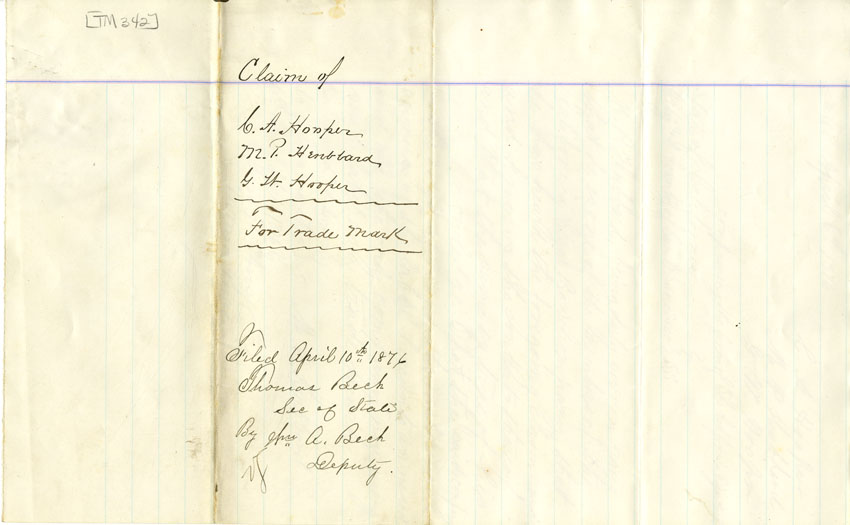 [TM 342]
Claim of
C. A. Hooper
M. P. Henbbard
G. W. Hooper
For Trade Mark
Filed April 10th 1876
Thomas Beck
Sec of State
By Wm A. Beck
Deputy.